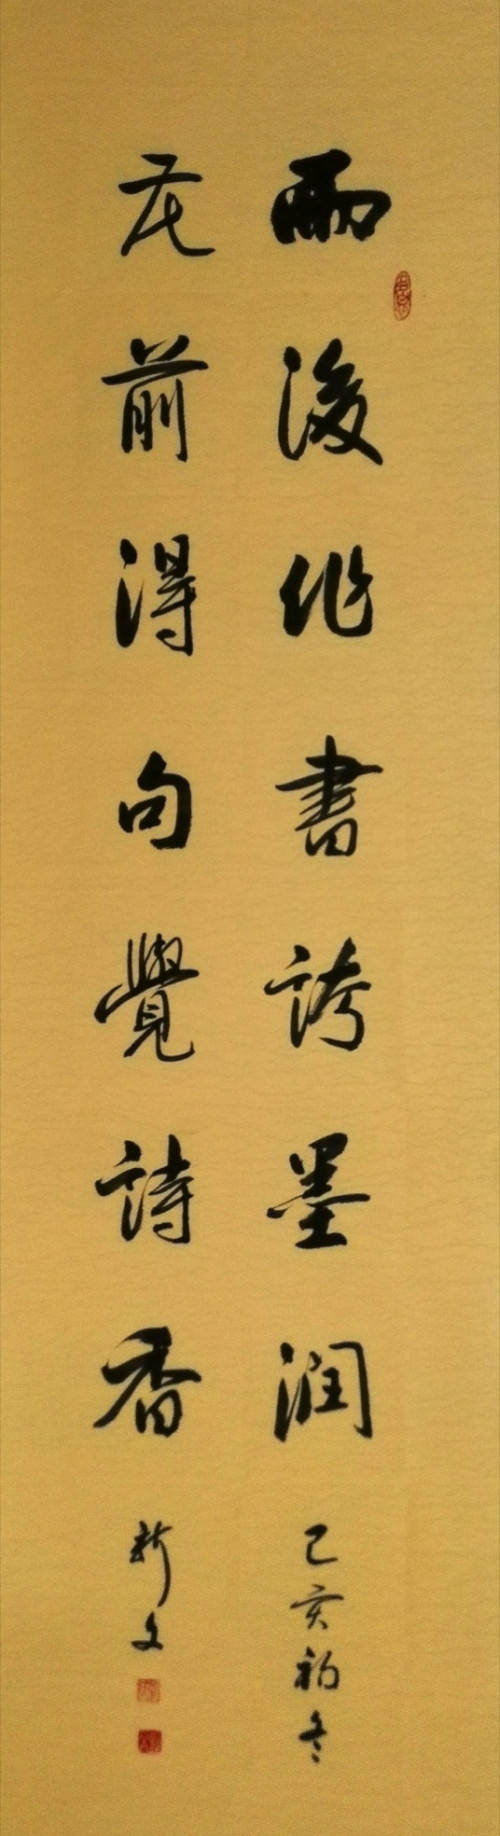 雨後作書誇墨润
己亥初冬
花前得句覺詩香
新文